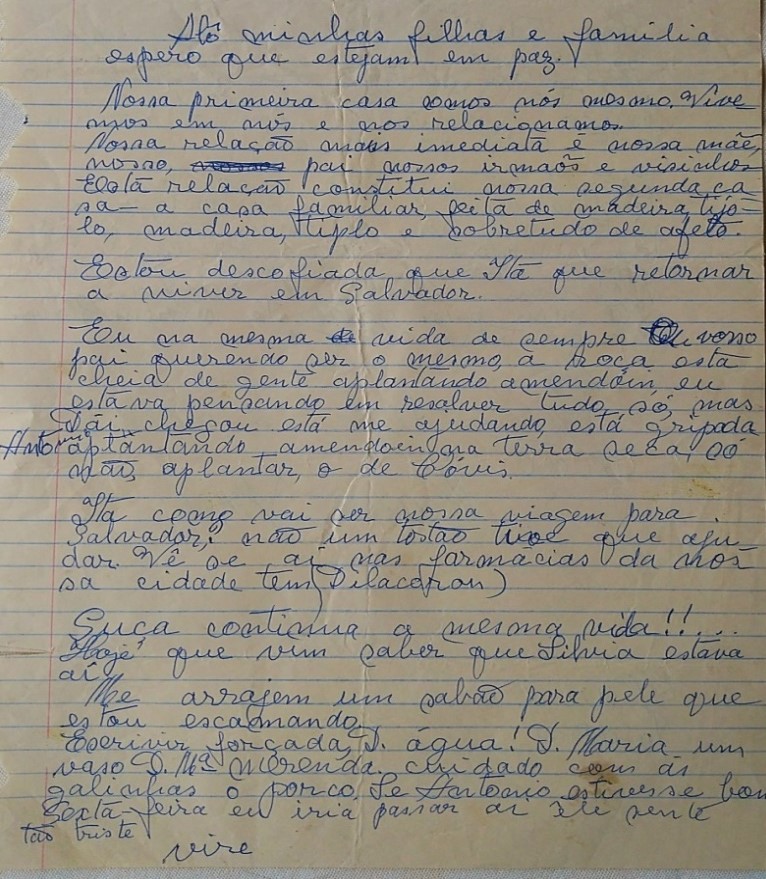 Alô minhas filhas e familia
espero que estejam em paz.
Nossa primeira casa somos nós mesmo. Vive
mos em nós e nos relacionamos.
Nossa relação mais imediata é nossa mãe,
nosso, pai nossos irmaõs e visinhos
Esta relação constitui nossa segunda ca
sa — a casa familiar, feita de madeira, tijo-
lo, madeira, e sobretudo de afeto.
Estou descofiada, que Ita que retornar
a viver em Salvador.
Eu na mesma vida de sempre vosso
pai querendo ser o mesmo, a roça está
cheia de gente aplantando amendoim, eu
estava pensando em resolver tudo só, mas
chegou está me ajudando, está gripada
aplantando amendoin, na terra seca, só
não, aplantar, o de
Ita como vai ser nossa viagem para
Salvador; não um tostão tive que aju
dar. Vê se aí nas farmácias da nos
sa cidade tem
Suca continua a mesma vida!!...
Hoje que vim saber que Silvia estava
aí.
Me arrajem um sabão para pele que
estou escamando.
Escrivir forçada, D. água! D. Maria um
vaso D. Mª merenda. cuidado com as
galinhas o porco. Se Antonio estivesse bom
Sexta-feira eu iria passar aí ele sente
tão triste
vire